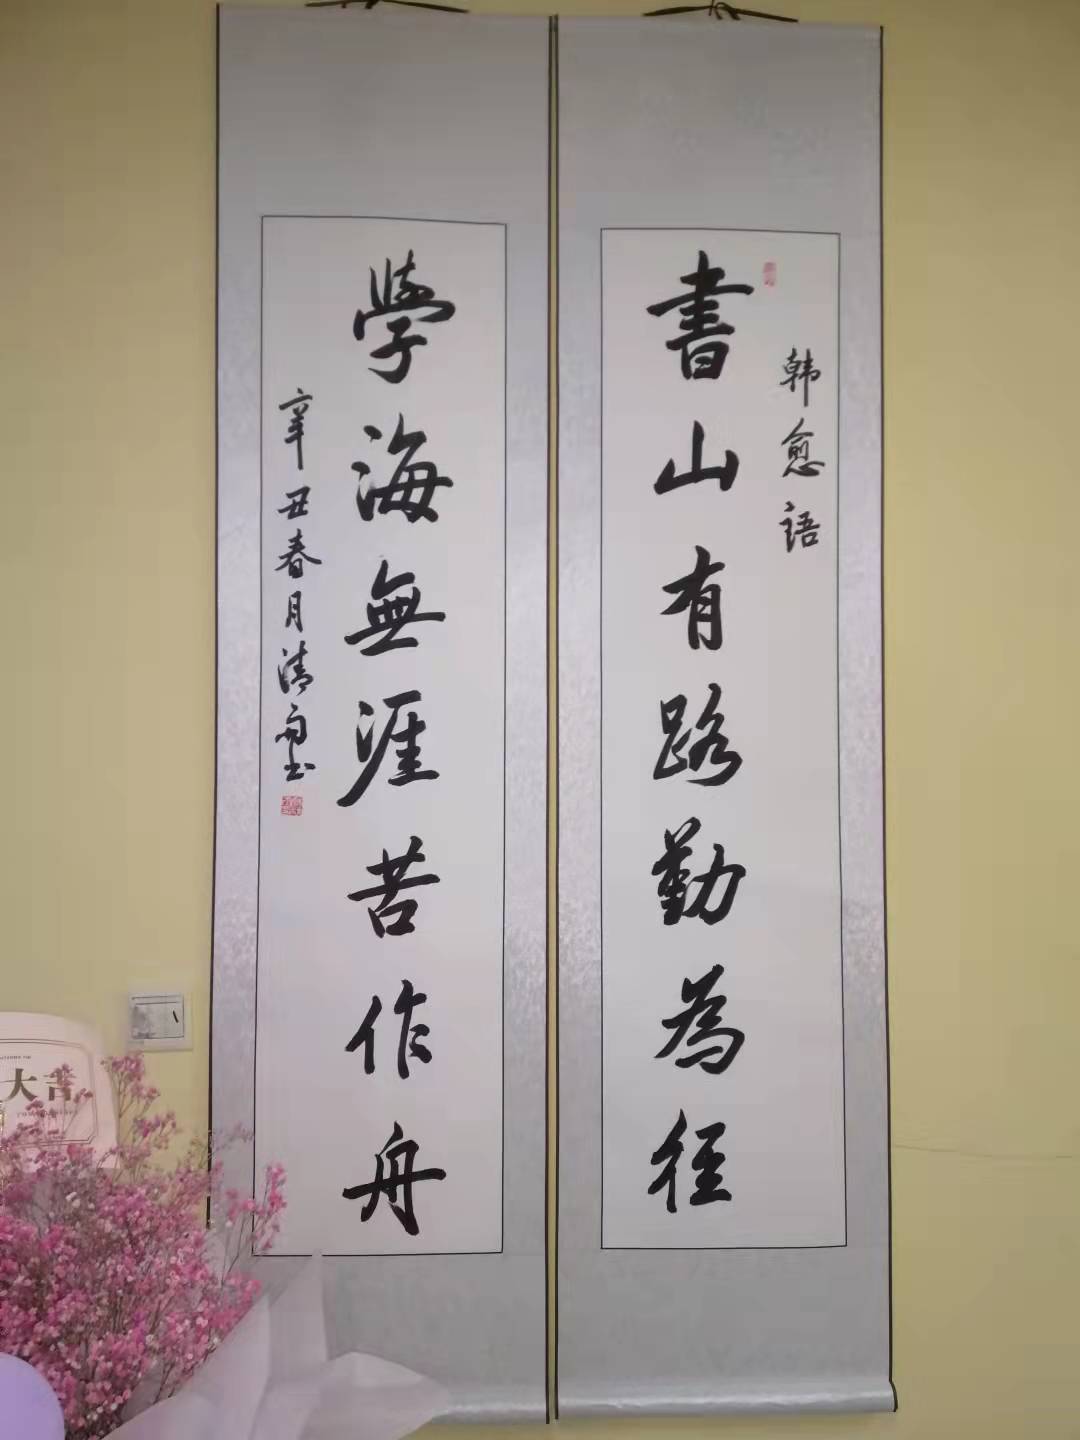 韩愈语
書山有路勤為径
學海無涯苦作舟
辛丑春月清
大吉